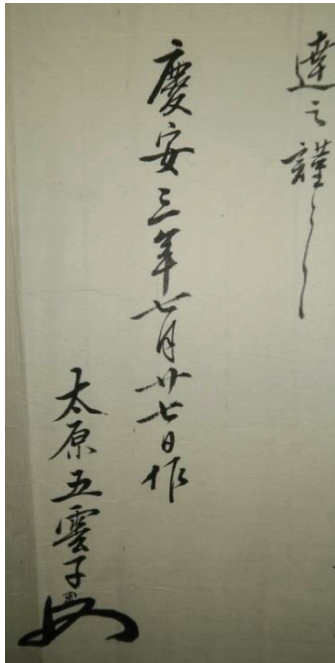 達之謹言
慶安三年七月廿七日作
太原五雲子